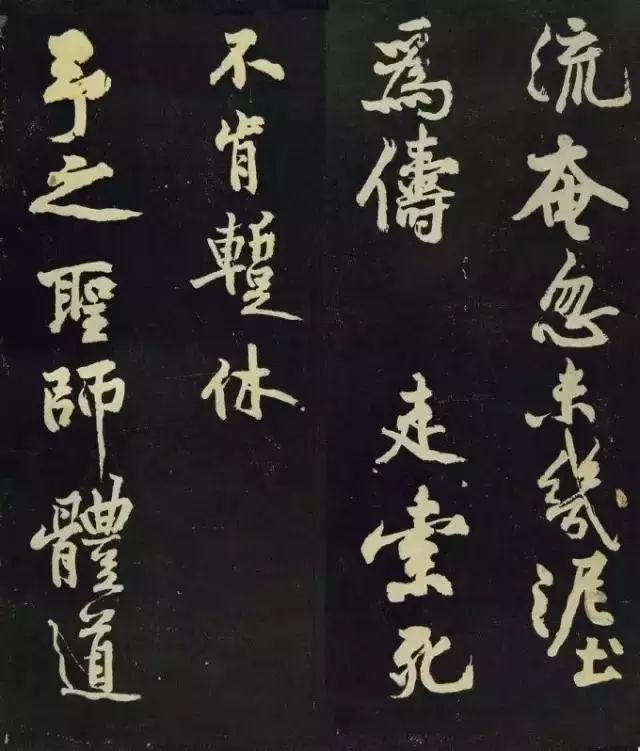 流奄忽未幾泥土
爲儔 走索死
不肯蹔休
予之聖師體道